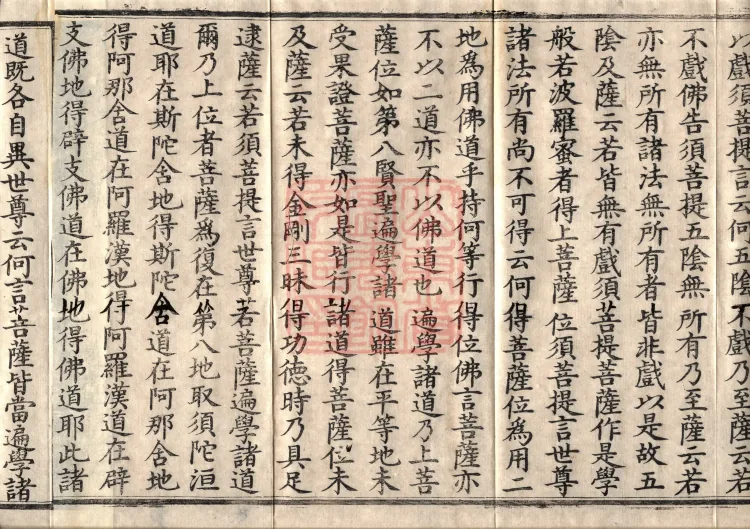 以戲須菩提言云何五陰不戲乃至薩云若
不戲佛告須菩提五陰無所有乃至薩云若
亦無所有諸法無所有者皆非戲以是故五
陰及薩云若皆無有戲須菩提菩薩作是學
般若波羅蜜者得上菩薩位須菩提言世尊
諸法所有尚不可得云何得菩薩位為用二
地為用佛道乎持何等行得位佛言菩薩亦
不以二道亦不以佛道也遍學諸道乃上菩
薩位如第八賢聖遍學諸道雖在平等地未
受果證菩薩亦如是皆行諸道得菩薩位未
及薩云若未得金剛三昧得功德時乃具足
逮薩云若須菩提言世尊若菩薩遍學諸道
爾乃上位者菩薩為復在第八地取須陀洹
道耶在斯陀含地得斯陀含道在阿那含地
得阿那含道在阿羅漢地得阿羅漢道在辟
支佛地得辟支佛道在佛地得佛道耶此諸
道既各自異世尊云何言菩薩皆當遍學諸